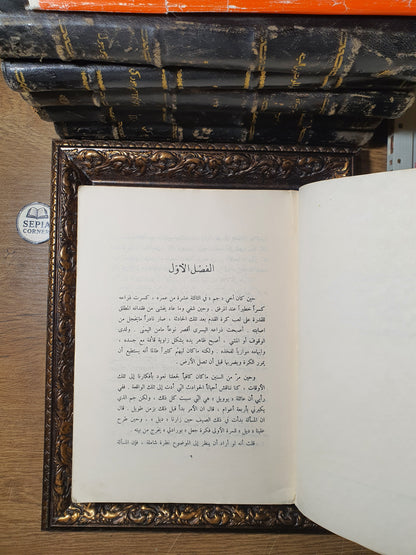 SEPIA
CORNER
الفصل الأول
حين كان أخي « جم » في الثالثة عشرة من عمره ، كسرت ذراعه
كسراً خطيراً عند المرفق . وحين شفي وما عاد يخشى من فقدانه المطلق
للقدرة على لعب كرة القدم بعد تلك الحادثة ، صار نادراً ما يخجل من
اصابته . أصبحت ذراعه اليسرى أقصر نوعاً ما من اليمنى . ولدى
الوقوف أو المشي ، أصبح ظاهر يده يشكل زاوية قائمة مع جسده ،
وإبهامه موازياً لفخذه . ولكنه ما كان ليهتم كثيراً طالما أنه يستطيع أن
يمرر الكرة ويضربها قبل أن تصل الأرض .
وحين مرّ من السنين ما كان كافياً لجعلنا نعود بأفكارنا إلى تلك
الأوقات ، كنا نناقش أحياناً الحوادث التي أدت إلى تلك الواقعة . ففي
رأيي أن عائلة « يوويل » هي التي سببت كل ذلك ، ولكن جم الذي
يكبرني بأربعة أعوام ، قال ان الأمر بدأ قبل ذلك بزمن طويل . قال
ان المسألة بدأت في ذلك الصيف حين زارنا « ديل » ، وحين عرض
علينا « ديل » للمرة الأولى فكرة جعل « بو رادلي » يخرج من بيته .
قلت أنه لو أراد أن ينظر إلى الموضوع نظرة شاملة ، فإن المسألة
٩